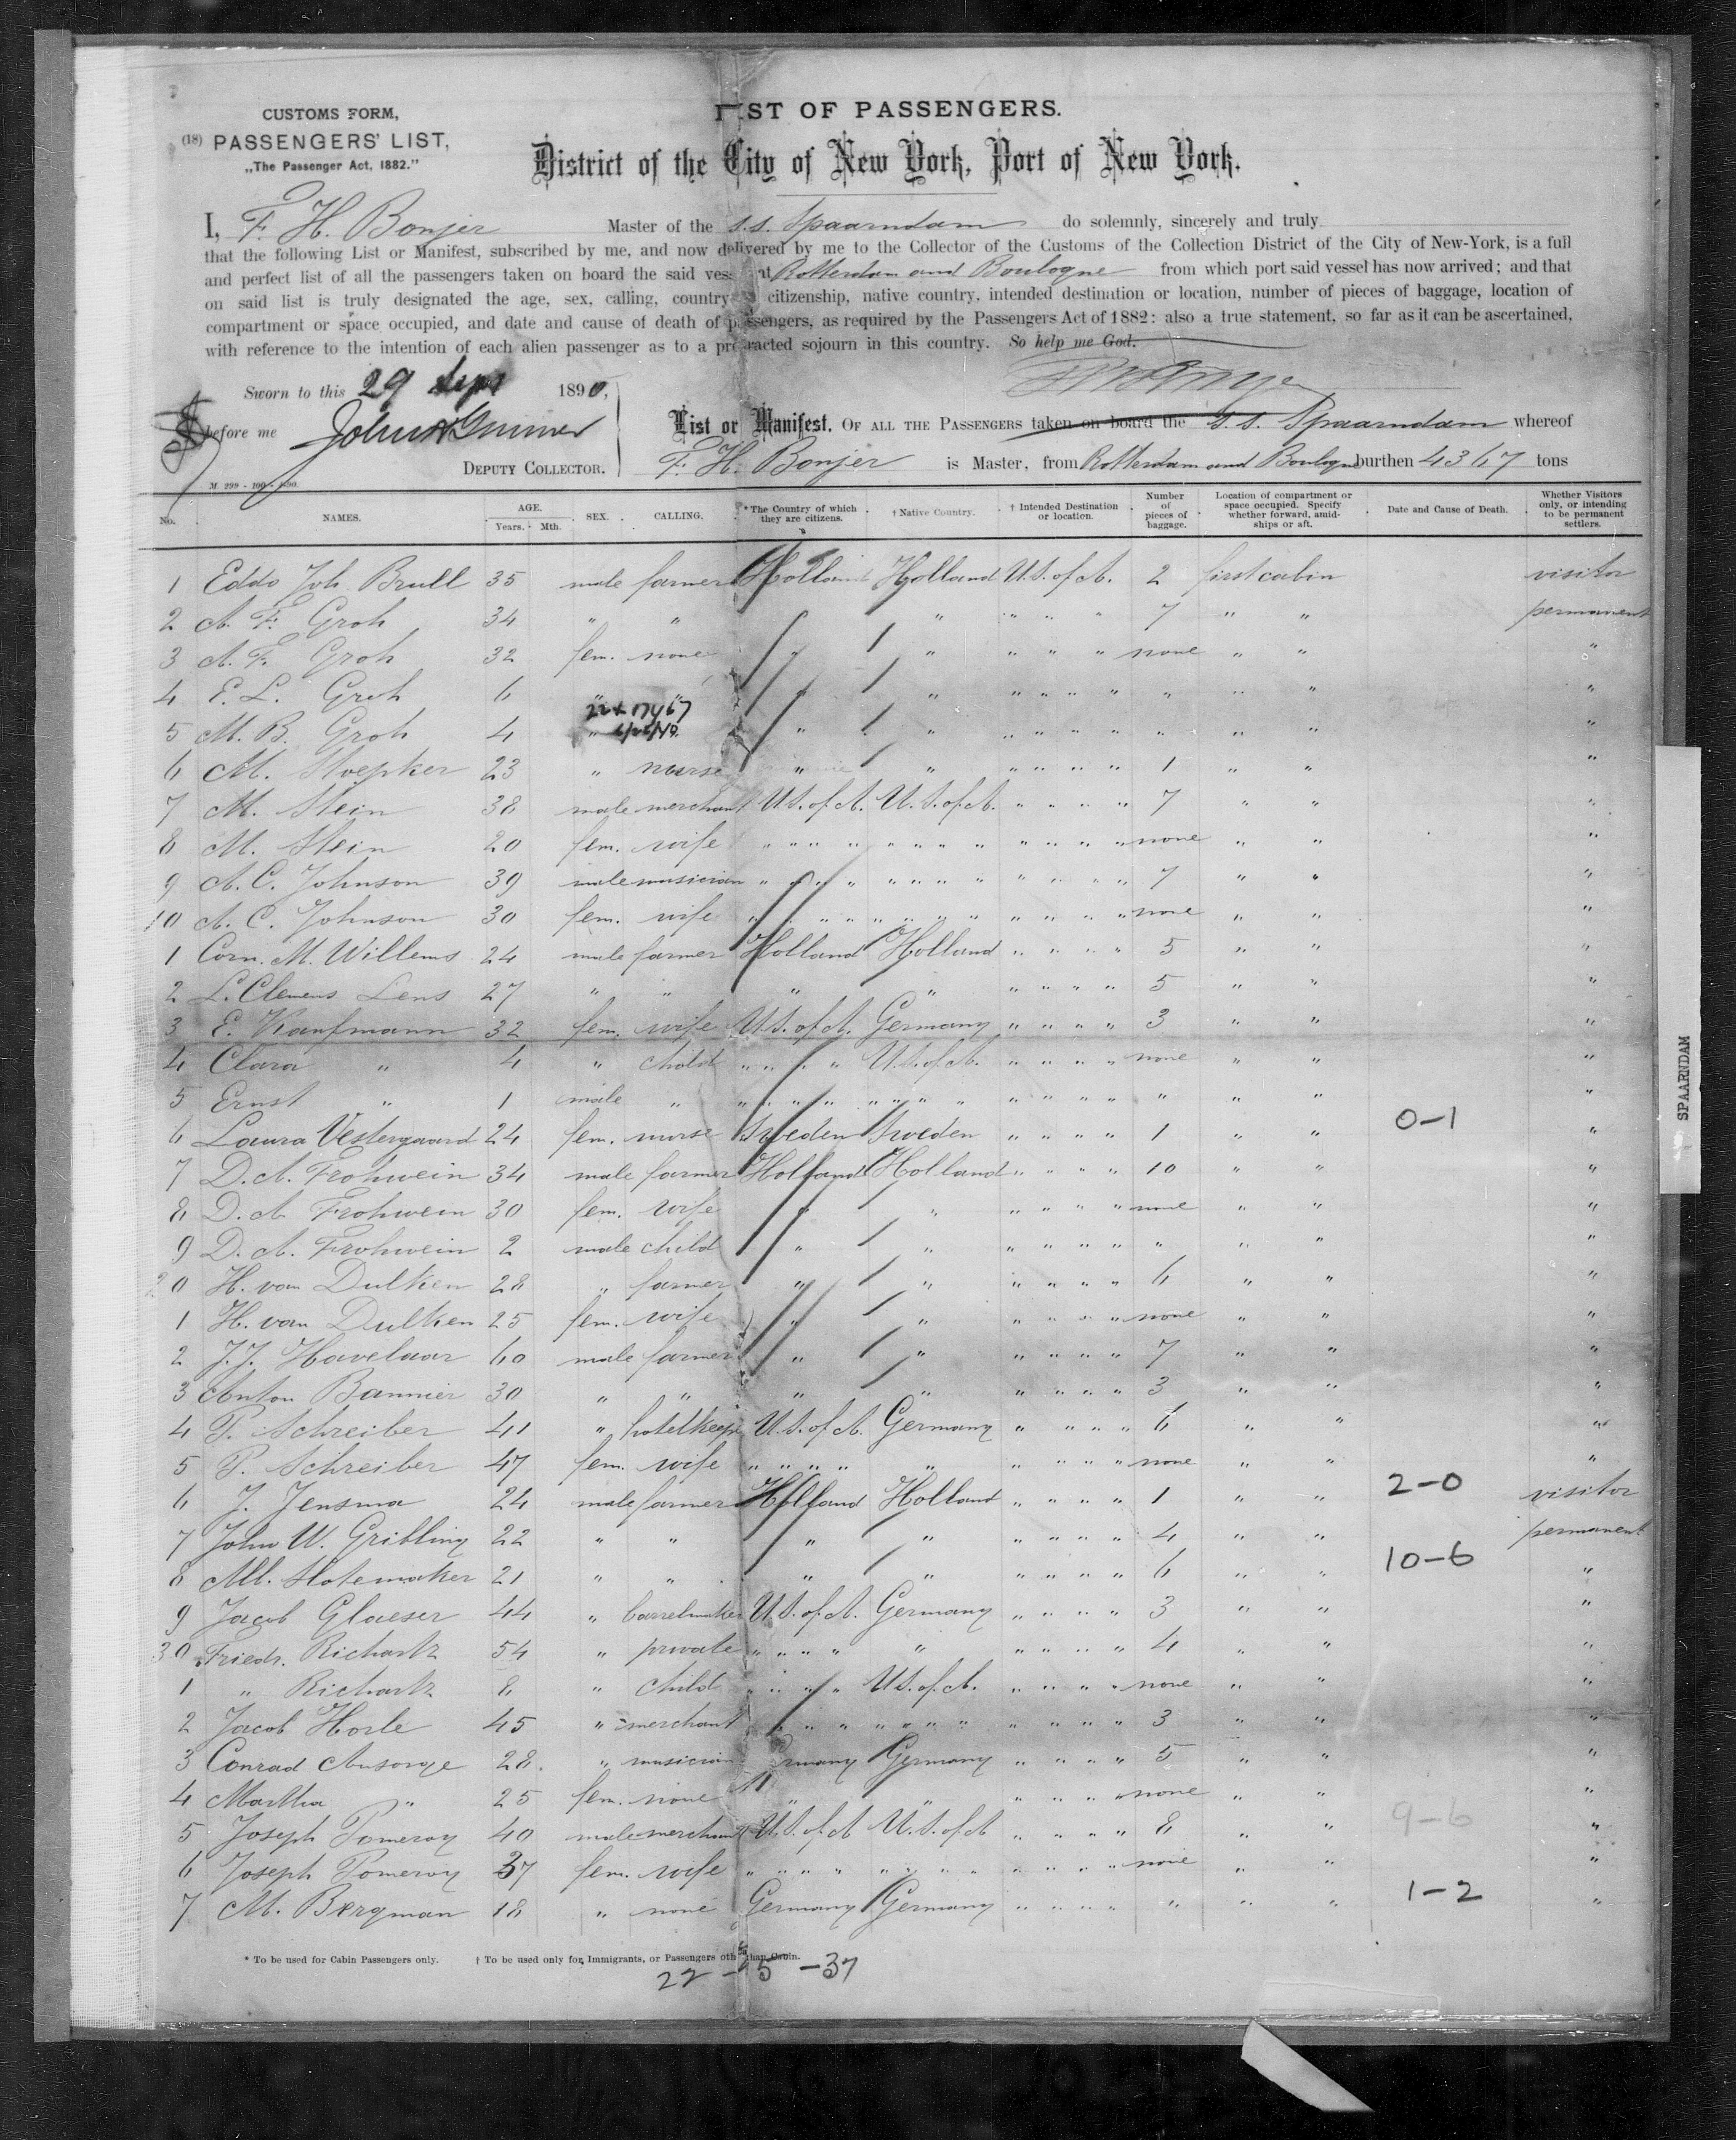 CUSTOMS FORM,
(18) PASSENGERS' LIST,
„The Passenger Act, 1882."
LIST OF PASSENGERS.
District of the City of New York, Port of New York.
I, F. H. Bonjer Master of the s.s. Spaarndam do solemnly, sincerely and truly
that the following List or Manifest, subscribed by me, and now delivered by me to the Collector of the Customs of the Collection District of the City of New-York, is a full
and perfect list of all the passengers taken on board the said vessel at Rotterdam and Boulogne from which port said vessel has now arrived; and that
on said list is truly designated the age, sex, calling, country of citizenship, native country, intended destination or location, number of pieces of baggage, location of
compartment or space occupied, and date and cause of death of passengers, as required by the Passengers Act of 1882: also a true statement, so far as it can be ascertained,
with reference to the intention of each alien passenger as to a protracted sojourn in this country. So help me God.
Sworn to this 29 Sept 1890,
before me
DEPUTY COLLECTOR.
List or Manifest, OF ALL THE PASSENGERS taken on board the s.s. Spaarndam whereof
F. H. Bonjer is Master, from Rotterdam and Boulogne burthen 4367 tons
No. NAMES. AGE. Years. Mth. SEX. CALLING. * The Country of which they are citizens. † Native Country. † Intended Destination or location. Number of pieces of baggage. Location of compartment or space occupied. Specify whether forward, amid-ships or aft. Date and Cause of Death. Whether Visitors only, or intending to be permanent settlers.
1 Eddo Joh Brull 35 male farmer Holland Holland U.S. of A. 2 first cabin visitor
2 A. F. Groh 34 " " " " " " 7 " " permanent
3 A. F. Groh 32 fem. none " " " " " none " " "
4 E. L. Groh 6 " " " " " " " " " " "
5 M. B. Groh 4 " " " " " " " " " " "
6 M. Stoepker 23 " nurse " " " " " " 1 " " "
7 M. Stein 38 male merchant U.S. of A. U.S. of A. " " " " 7 " " "
8 M. Stein 20 fem. wife " " " " " " " " " " " " none " " "
9 A. C. Johnson 39 male musician " " " " " " " " " " " " 7 " " "
10 A. C. Johnson 30 fem. wife " " " " " " " " " " " " none " " "
1 Corn. M. Willems 24 male farmer Holland Holland " " " " 5 " " "
2 L. Clemens Lens 27 " " " " " " " " 5 " " "
3 E. Kaufmann 32 fem. wife U.S. of A. Germany " " " " 3 " " "
4 Clara " 4 " child " " " " U.S. of A. " " " " none " " "
5 Ernst " 1 male " " " " " " " " " " " " " " " " "
6 Laura Vestergaard 24 fem. nurse Sweden Sweden " " " " 1 " " 0-1 "
7 D. A. Frohwein 34 male farmer Holland Holland " " " " 10 " " "
8 D. A. Frohwein 30 fem. wife " " " " " " none " " "
9 D. A. Frohwein 2 male child " " " " " " " " " "
20 H. van Dulken 28 " farmer " " " " " " 6 " " "
1 H. van Dulken 25 fem. wife " " " " " " none " " "
2 J. J. Havelaar 60 male farmer " " " " " " 7 " " "
3 Anton Bannier 30 " " " " " " " " 3 " " "
4 P. Schreiber 41 " hotelkeeper U.S. of A. Germany " " " " 6 " " "
5 P. Schreiber 47 fem. wife " " " " " " " " " none " " "
6 J. Jensma 24 male farmer Holland Holland " " " " 1 " " 2-0 visitor
7 John W. Gribling 22 " " " " " " " " 4 " " permanent
8 Slotemaker 21 " " " " " " " " 6 " " 10-6 "
9 Jacob Glaeser 44 " barrelmaker U.S. of A. Germany " " " " 3 " " "
30 Friedr. Richartz 54 " private " " " " " " " " " 4 " " "
1 " Richartz 8 " child " " " " U.S. of A. " " " " none " " "
2 Jacob Horle 45 " merchant " " " " " " " " " " " " 3 " " "
3 Conrad Ansorge 28. " musician Germany Germany " " " " 5 " " "
4 Martha " 25 fem. none " " " " " " none " " "
5 Joseph Pomeroy 40 male merchant U.S. of A U.S. of A " " " " 8 " " 9-6 "
6 Joseph Pomeroy 37 fem. wife " " " " " " " " " " " " none " " "
7 M. Bergman 18 " none Germany Germany " " " " " " " 1-2 "
* To be used for Cabin Passengers only. † To be used only for Immigrants, or Passengers other than Cabin.
22 - 15 - 37
SPAARNDAM